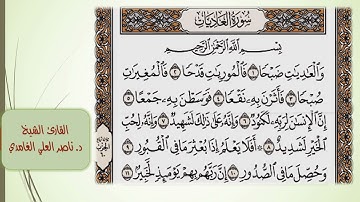 سُورَةُ العَادِيَاتِ
بِسْمِ اللَّهِ الرَّحْمَٰنِ الرَّحِيمِ
وَالْعَٰدِيَٰتِ ضَبْحًا ١ فَالْمُورِيَٰتِ قَدْحًا ٢ فَالْمُغِيرَٰتِ
صُبْحًا ٣ فَأَثَرْنَ بِهِ نَقْعًا ٤ فَوَسَطْنَ بِهِ جَمْعًا ٥
إِنَّ الْإِنسَٰنَ لِرَبِّهِ لَكَنُودٌ ٦ وَإِنَّهُ عَلَىٰ ذَٰلِكَ لَشَهِيدٌ ٧ وَإِنَّهُ لِحُبِّ
الْخَيْرِ لَشَدِيدٌ ٨ ۞ أَفَلَا يَعْلَمُ إِذَا بُعْثِرَ مَا فِي الْقُبُورِ ٩
وَحُصِّلَ مَا فِي الصُّدُورِ ١٠ إِنَّ رَبَّهُم بِهِمْ يَوْمَئِذٍ لَّخَبِيرٌ ١١
القارئ الشيخ
د. ناصر العلي الغامدي